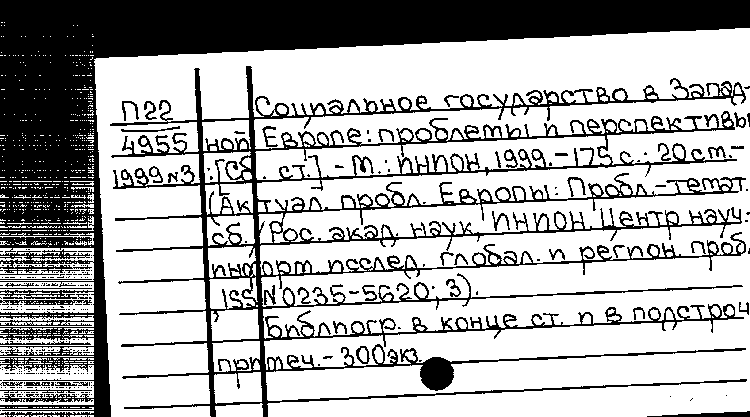 П22 Социальное государство в Запад-
4955 ной Европе: проблемы и перспективы
1999 №3 : [Сб. ст.]. - М.: ИНИОН, 1999. - 175 с.; 20 см. -
(Актуал. пробл. Европы: Пробл.-темат.
сб. / Рос. акад. наук, ИНИОН. Центр науч.-
информ. исслед. глобал. и регион. пробл.
, ISSN 0235-5620; 3).
Библиогр. в конце ст. и в подстроч.
примеч. - 300 экз.